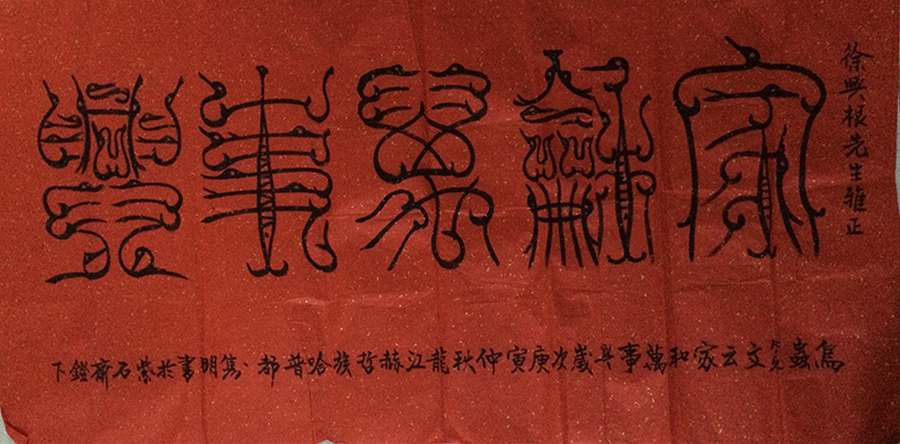 家龢萬事興
徐興根先生雅正
鳥蟲篆文云家和萬事興歲次庚寅仲秋龍江赫哲族哈普都·隽明書於紫石齋鐙下